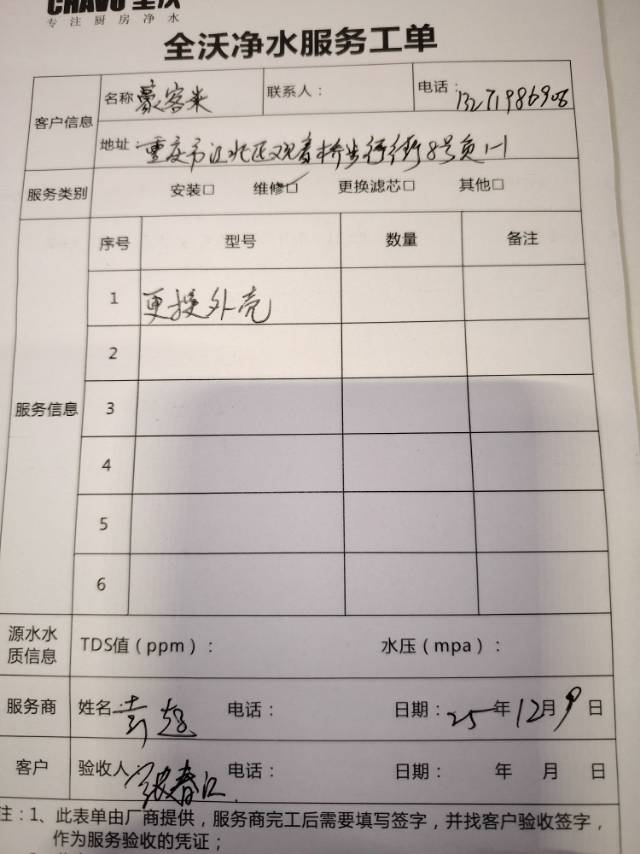 CHAVO 全沃
专注厨房净水
全沃净水服务工单
客户信息 名称 豪客来 联系人： 电话：13271986906
地址：重庆市江北区观音桥步行街8号负1-1
服务类别 安装□ 维修☑ 更换滤芯□ 其他□
服务信息 序号 型号 数量 备注
1 更换外壳
2
3
4
5
6
源水水质信息 TDS值（ppm）： 水压（mpa）：
服务商 姓名： 电话： 日期：25年12月9日
客户 验收人：张春江 电话： 日期： 年 月 日
注：1、此表单由厂商提供，服务商完工后需要填写签字，并找客户验收签字，
作为服务验收的凭证；